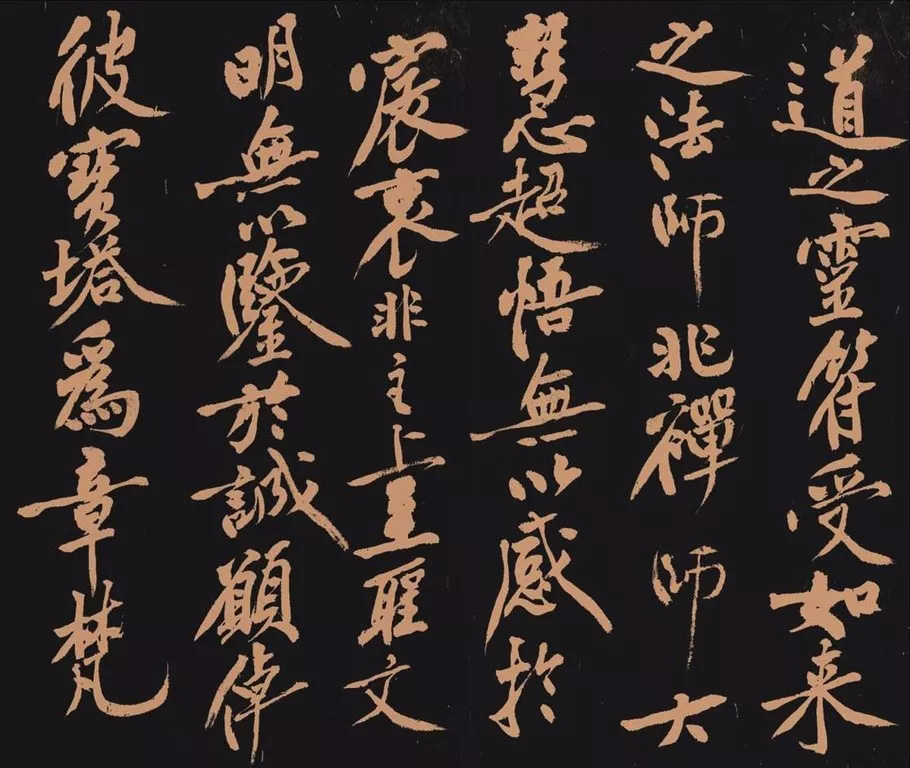 道之靈符受如来
之法師非禪師大
慧超悟無以感於
宸衷非主上至聖文
明無以鑒於誠願倬
彼寶塔為章梵